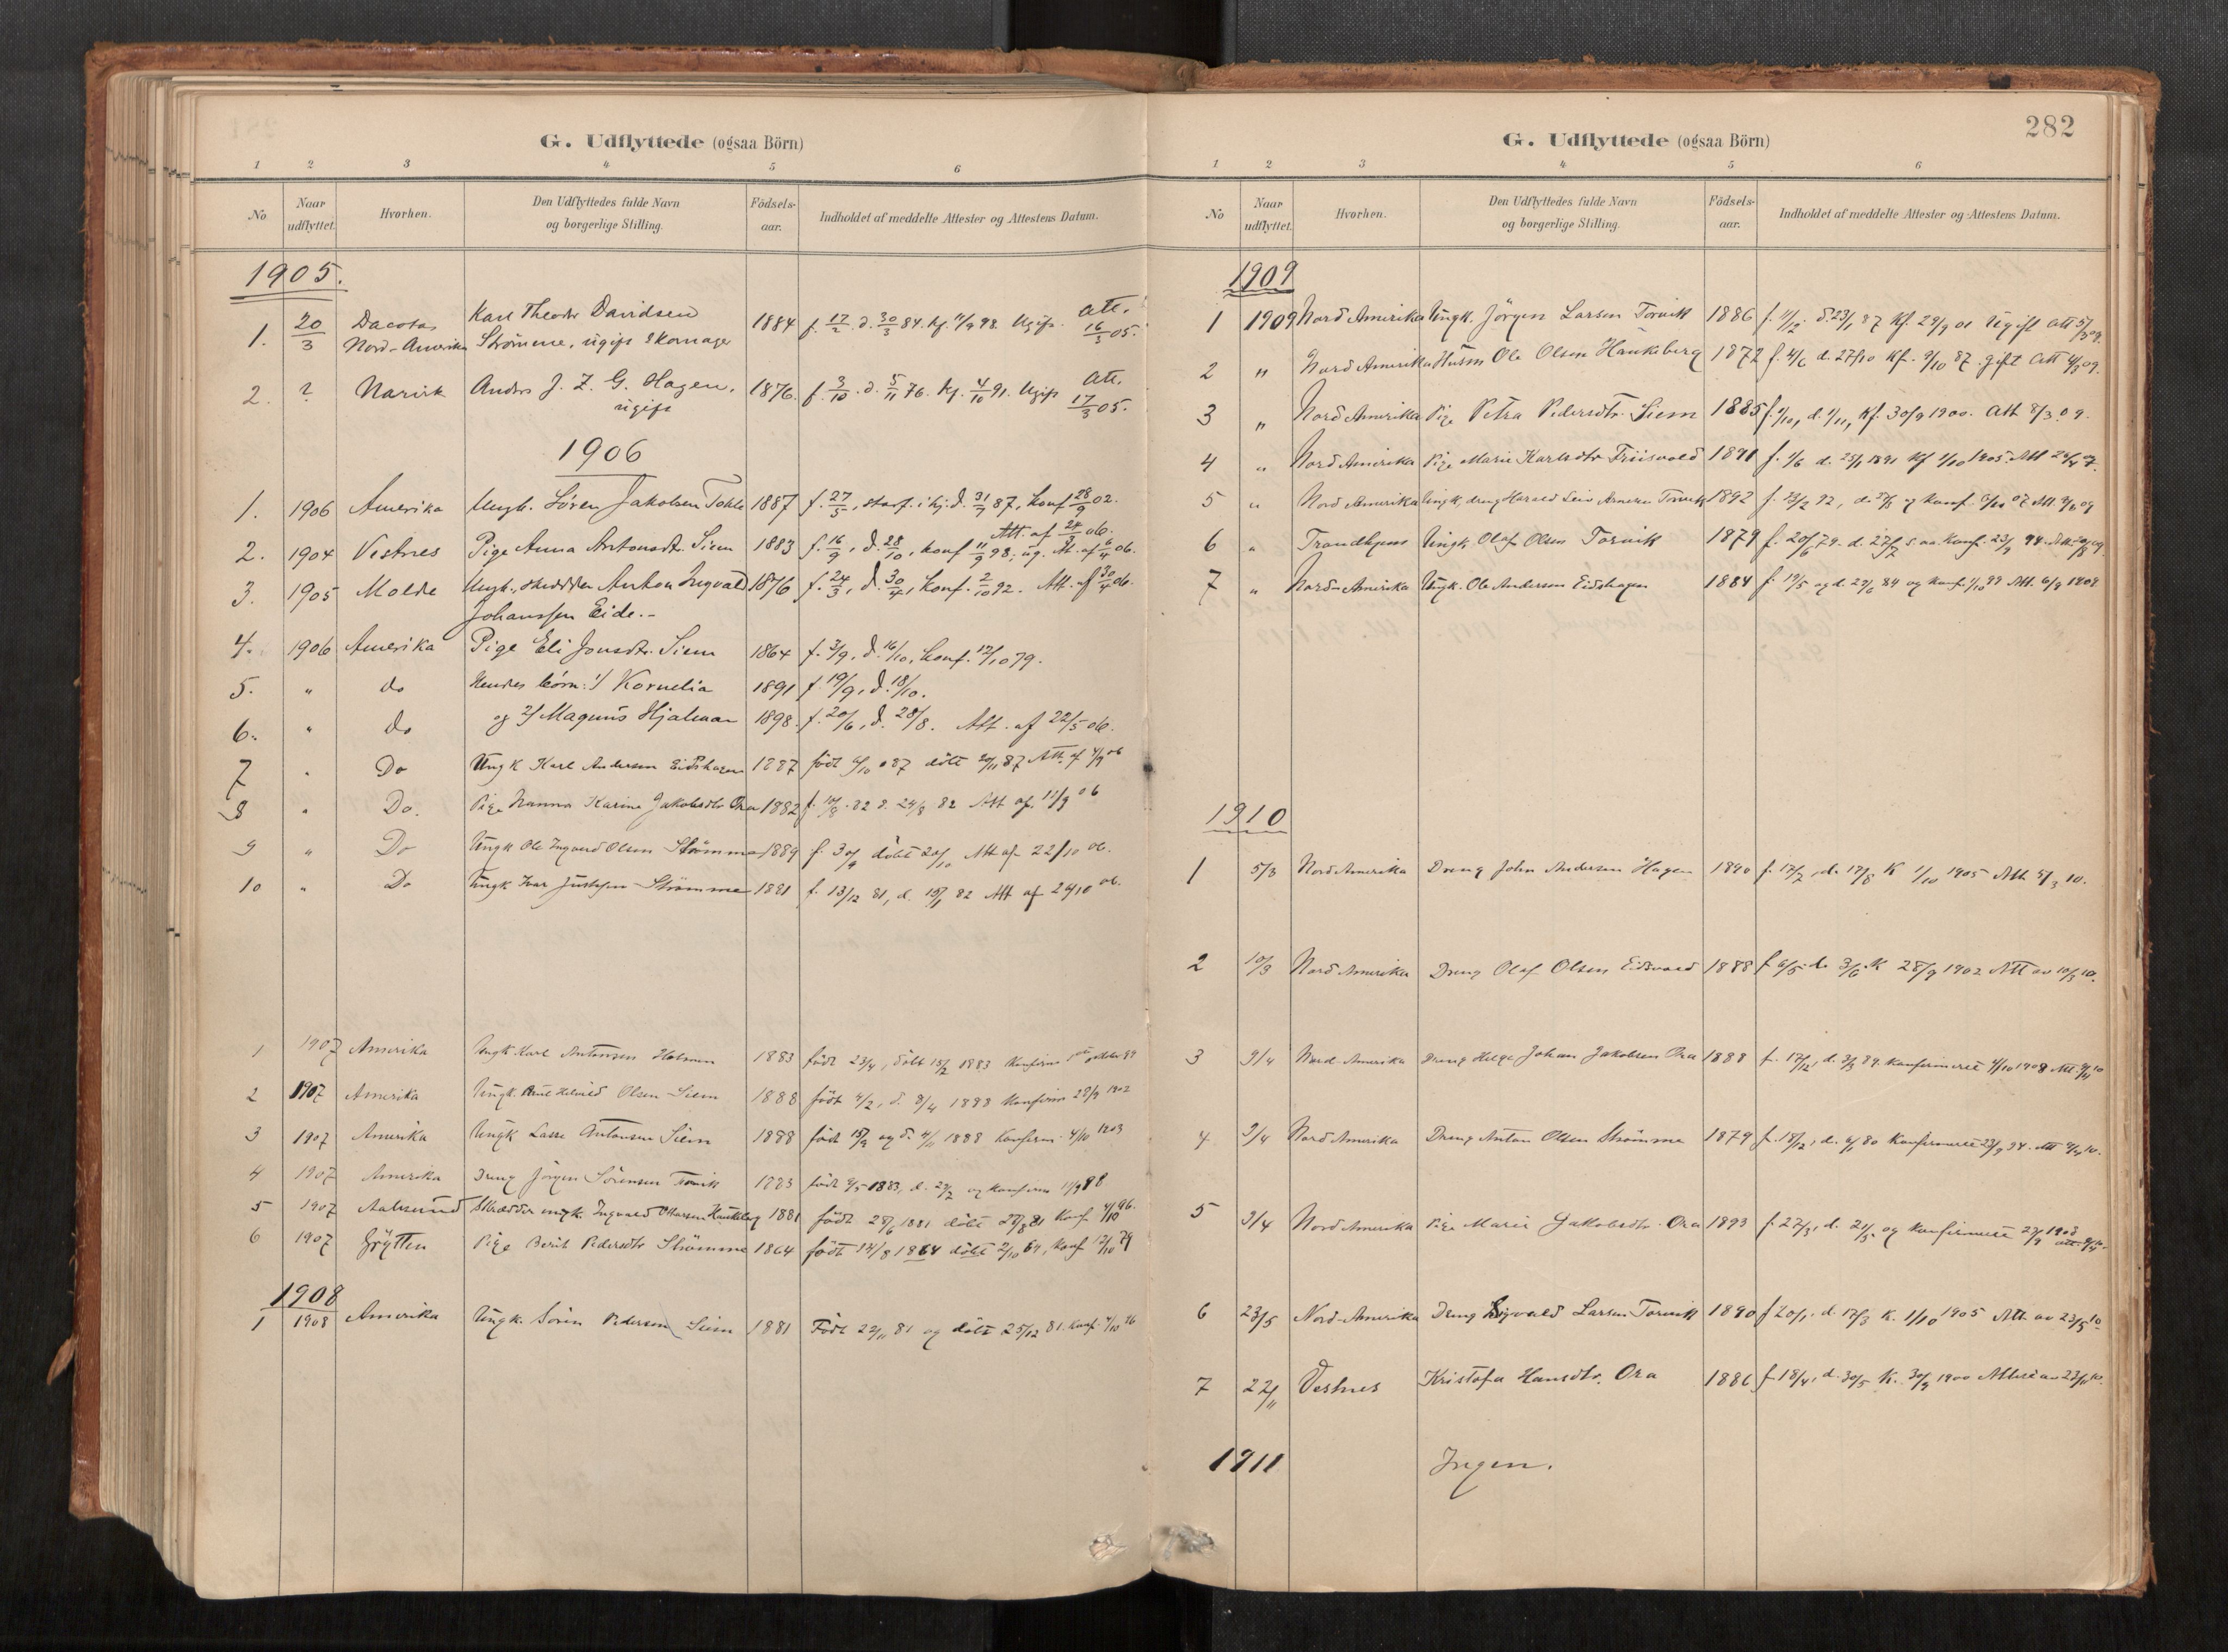 G. Udflyttede (ogsaa Börn)
1 2 3 4 5 6
No Naar udflyttet. Hvorhen. Den Udflyttedes fulde Navn og borgerlige Stilling. Födsels-aar. Indholdet af meddelte Attester og Attestens Datum.
1905.
1. 20/3 Dacotas Karl Theodor Davidsen 1884 f. 17/2 d. 30/3 84. kf. 11/9 98. Ugift. Att. 16/3 05.
Nord-Amerika Strömme, ugift Skomager
2. ? Narvik Anders J. Z. G. Hagen. 1876. f. 3/10. d. 5/11 76. kf. 4/10 91. Ugift Att. 17/3 05.
ugift
1906
1. 1906 Amerika Ungk. Sören Jakobsen Tokle 1887 f. 27/5, d. 31/7 87, konf 28/9 02.
Att. af 24/3 06.
2. 1904 Vestnes Pige Anna Antonsdtr. Siem 1883 f. 16/9, d. 28/10, konf 11/9 98, ug. At. af 6/4 06.
3. 1905 Molde Ungk., skrædder Anton Ingvald 1876 f. 24/3, d. 30/4, konf. 2/10 92. Att. af 30/4 06.
Johanssen Eide.-
4. 1906 Amerika Pige Eli Jonsdtr. Siem 1864 f. 3/9, d. 16/10, konf. 12/10 79.
5. " do Hendes börn: 1/ Kornelia 1891 f. 19/9, d. 18/10.
6. " do og 2/ Magnus Hjalmar 1898. f. 20/6, d. 28/8. Att. af 22/5 06.
7 " Do Ungk Karl Andersen Eidshagen 1887 födt 6/10 87 döbt 20/11 87 Att. af 4/9 06
8 " Do. Pige Nanna Karine Jakobsdtr Ora 1882 f. 10/8 82 d. 24/9 82 Att af. 11/9 06
9 " Do Ungk Ole Ingvard Olsen Strömme 1889 f. 30/9 döbt 20/10 Att af 22/10 06.
10 " Do Ungk Ivar Justesen Strömme 1881 f. 13/12 81, d. 15/1 82 Att af 24/10 06.
1 1907 Amerika Ungk Karl Antonsen Holmem 1883 födt 23/4, döbt 15/2 1883 Konfirm
2 1907 Amerika Ungk. Olsen Siem 1888 födt 4/2, d. 8/4 1888 Konfirm 28/9 1902
3 1907 Amerika Ungk Lasse Antonsen Siem 1888 födt 15/9 og d. 4/11 1888 Konfirm. 4/10 1903
4 1907 Amerika Dreng Jörgen Sörensen Torvik 1883 födt 9/5 1883, d. 29/2 og konfirm 11/9 98
5 1907 Aalesund Skrædder ungk. Ingvald Ottarsen Haukeberg 1881 födt 28/6 1881 döbt 28/8 81 Konf. 4/10 96.
6 1907 Grytten Pige Berit Pedersdtr Strömme 1864 födt 14/8 1864 döbt 2/10 64, Konf 12/10 79
1908
1 1908 Amerika Ungk. Sören Pedersen Siem 1881 Födt 22/11 81 og döbt 25/12 81. Konf. 4/10 96
282
G. Udflyttede (ogsaa Börn)
1 2 3 4 5 6
No Naar udflyttet. Hvorhen. Den Udflyttedes fulde Navn og borgerlige Stilling. Födsels-aar. Indholdet af meddelte Attester og Attestens Datum.
1909
1 1909 Nord Amerika Ungk. Jörgen Larsen Torvik 1886 f. 11/12. d. 23/1 87 Kf. 29/9 01 Ugift Att 5/3 09.
2 " Nord Amerika Husm Ole Olsen Haukeberg 1872 f. 4/6 d. 27/10 Kf. 9/10 87 gift Att 4/3 09.
3 " Nord Amerika Pige Petra Pedersdtr. Siem 1885 f. 1/10, d. 1/11, Kf. 30/9 1900. Att 8/3 09.
4 " Nord Amerika Pige Marie Karlsdtr Friisvold 1891 f. 1/6 d. 25/1 1891 Kf 1/10 1905. Att
5 " Nord Amerika Ungk. dreng Harald Leiv Arnesen Torvik 1892 f. 23/2 92, og konf.
6 " Trondhjem Ungk Olaf Olsen Torvik 1879 f. 20/6 79. d. 27/7 s. aa. Konf. 23/9 94. Att.
7 " Nord-Amerika Ungk. Ole Andersen Eidshagen 1884 f. 19/5 og d. 29/6 84 og konf. 1/10 99 Att. 6/8 1909
1910
1 5/3 Nord Amerika Dreng John Andersen Hagen 1890 f. 17/7, d. 17/8 K 1/10 1905 Att. 5/3 10.
2 10/3 Nord Amerika Dreng Olaf Olsen Eidsvold 1888 f. 6/5 d. 3/6 K 28/9 1902 Att av 10/3 10.
3 9/4 Nord-Amerika Dreng Helge Johan Jakobsen Ora 1888 f. 17/12, d. 3/3 89. Konfirmeret 4/10 1908 Att. 9/4 10
4 9/4 Nord Amerika Dreng Anton Olsen Strömme 1879 f. 18/12, d. 6/1 80 Konfirmeret 23/9 94. Att 9/4 10.
5 9/4 Nord Amerika Pige Marie Jakobsdtr. Ora 1893 f. 27/3, d. 21/5 og konfirmeret 27/9 1908
att. 9/4 10.
6 23/5 Nord-Amerika Dreng Sigvald Larsen Torvik 1890 f 20/1. d. 17/3 K. 1/10 1905 Att. av 23/5 10
7 22/11 Vestnes Kristofa Hansdtr. Ora 1886 f. 18/4, d. 30/5 K. 30/9 1900 Attest av 22/11 10.
1911 Ingen.